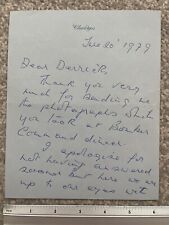 June 20' 1979
Dear Derrick,
Thank you very
much for sending me
the photographs which
you took at Bomber
Command dinner.
I apologise for
not having answered
sooner but here we
up to our eyes with